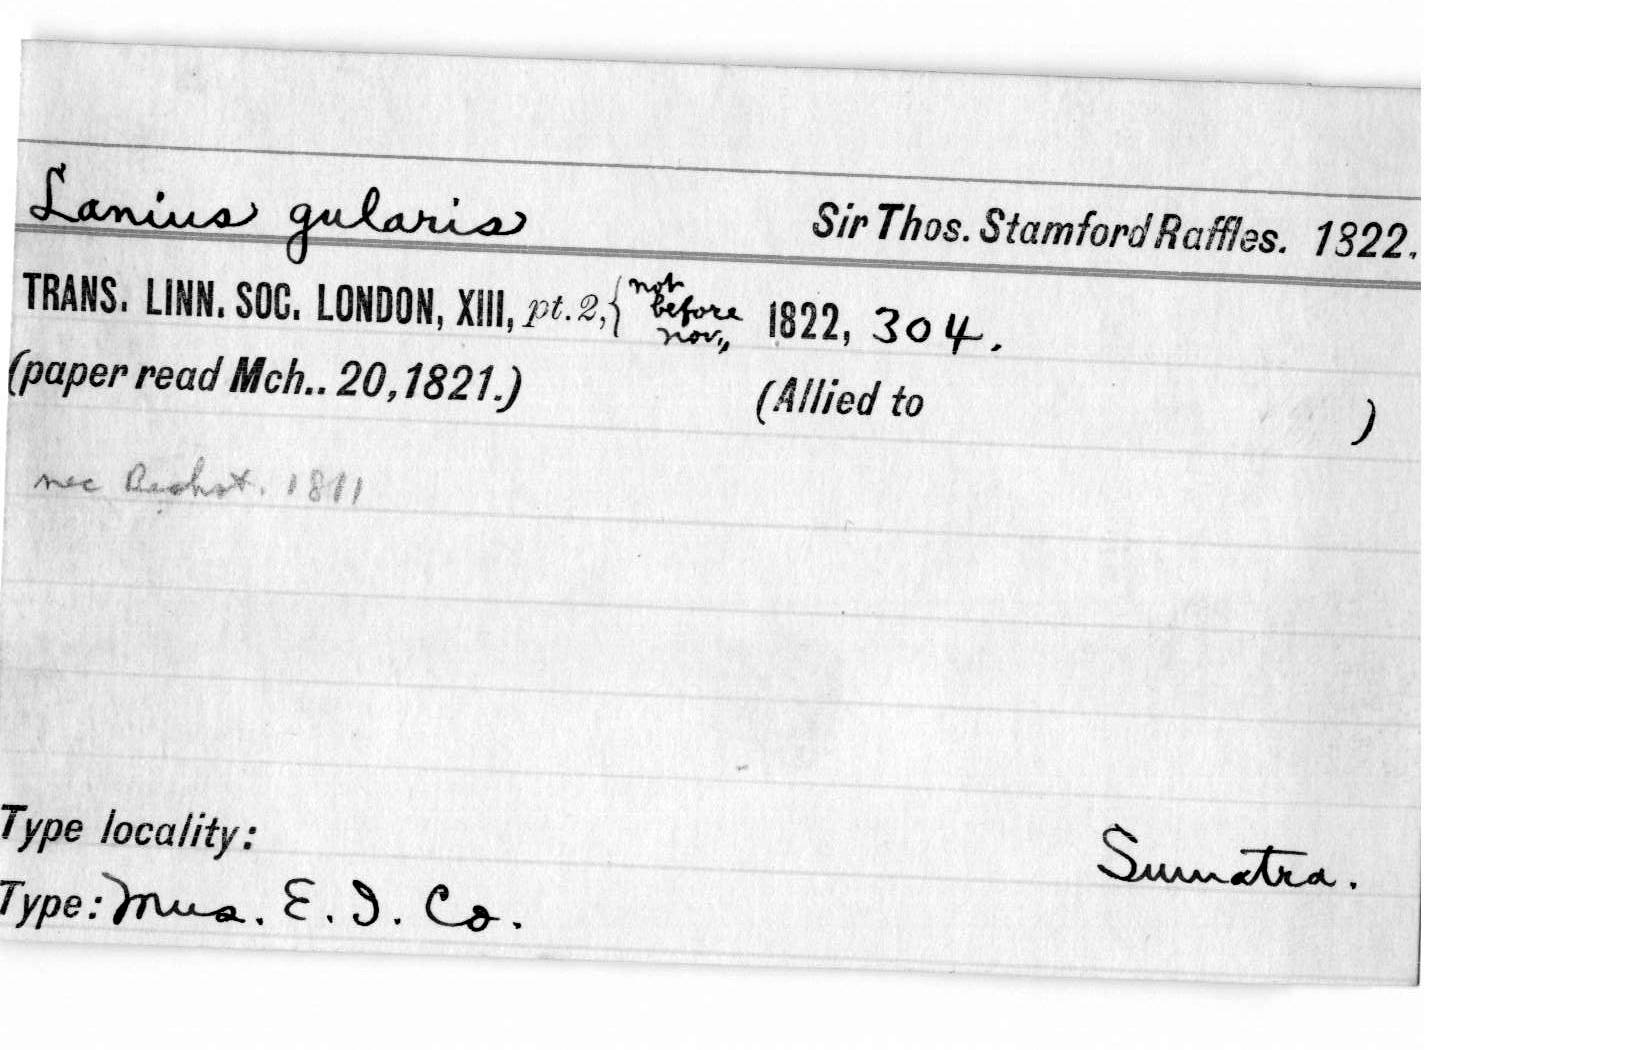 Lanius gularis Sir Thos. Stamford Raffles. 1822.
TRANS. LINN. SOC. LONDON, XIII, pt. 2, { not before nov., 1822, 304.
(paper read Mch.. 20, 1821.) (Allied to )
nec Bechst. 1811
Type locality: Sumatra.
Type: Mus. E. I. Co.